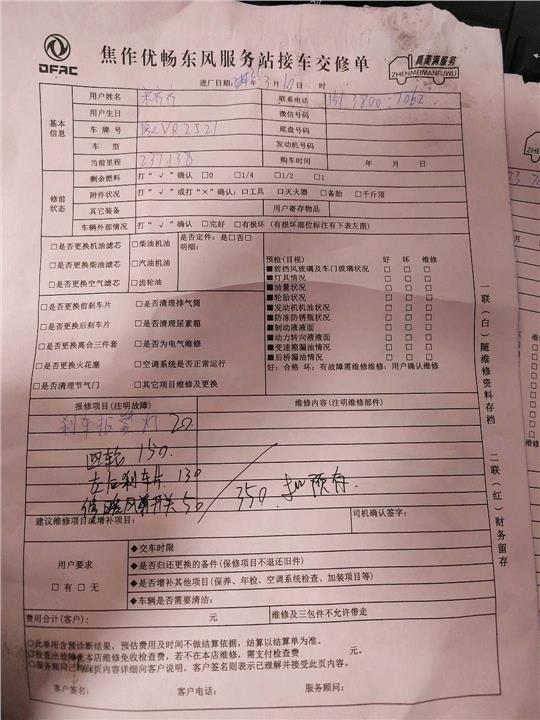 DFAC
焦作优畅东风服务站接车交修单
真美满服务
ZHENMEIMANFUWU
进厂日期: 年 3 月 10 日 时
基本信息
用户姓名
联系电话 151 3800 7062
用户生日
微信号码
车牌号 VQ2521
底盘号码
车型
发动机号码
当前里程 237138
购车时间 年 月 日
修前状态
剩余燃料 打“√”确认 □0 □1/4 □1/2 □1
附件状况 打“√”或打“×”确认:□工具 □灭火器 □备胎 □千斤顶
其它装备
用户寄存物品
车辆外部情况 打“√”确认 □完好 □有损坏(有损坏部位标注有下表左图)
□是否更换机油滤芯 □柴油机油
□是否更换柴油滤芯 □汽油机油
□是否更换空气滤芯 □齿轮油
是否定件:是□否□
明细:
□是否更换前刹车片 □是否清理排气筒
□是否更换后刹车片 □是否清理尿素箱
□是否更换离合三件套 □是否为电气维修
□是否更换火花塞 □空调系统是否正常运行
□是否清理节气门 □其它项目维修及更换
预检(目视) 好 坏 维修
■前挡风玻璃及车门玻璃状况 □ □ □
■灯具情况 □ □ □
■油量状况 □ □ □
■轮胎状况 □ □ □
■发动机机油状况 □ □ □
■防冻防锈瓶状况 □ □ □
■制动液液面 □ □ □
■动力转向液液面 □ □ □
■变速箱漏油情况 □ □ □
■后桥漏油情况 □ □ □
好:合格 坏:有故障需维修维修:用户确认维修
报修项目(注明故障)
维修内容(注明维修部件)
刹车报警灯 20
四轮 150
左后刹车片 130
修暖风开关 50
350 扣预存
建议维修项目或增补项目:
司机确认签字:
用户要求
□有□无
◆交车时限
◆是否归还更换的备件(保修项目不退还旧件)
◆是否增补其他项目(保养、年检、空调系统检查、加装项目等)
◆车辆是否需要清洁:
费用合计(客户): 元
维修及三包件不允许带走
○此单所含预诊断结果,预估费用及时间不做结算依据,结算以结算单为准。
○检查出故障在本店维修免收检查费,若不在本店维修,需支付检查费 元。
○服务顾问已将此页内容详细向客户说明,客户签名则表示已理解并接受此页内容。
客户签名: 客户电话: 服务顾问:
一联(白)随维修资料存档
二联(红)财务留存